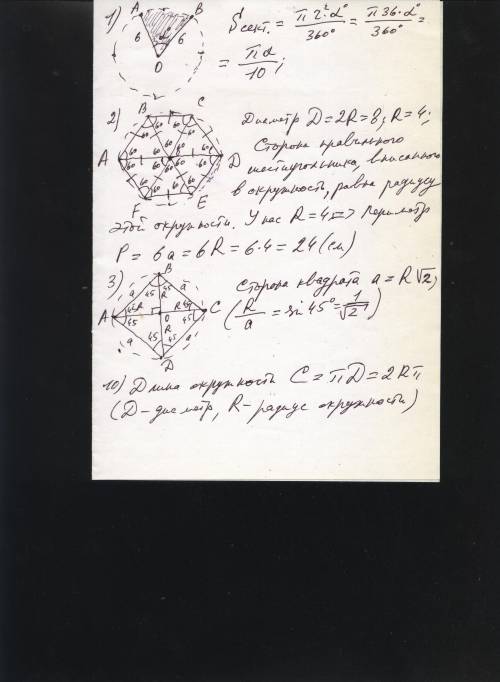 1) A B 6 6 α O
S сект. = π 2² · α° / 360° = π 36 · α° / 360° =
= πα / 10 ;
2) B C A D F E 60 60 60 60 60 60 60 60 60 60 60 60 60 60 60 60 60 60
Диаметр D = 2R = 8; R = 4;
Сторона правильного
шестиугольника, вписанного
в окружность, равна радиусу
этой окружности. У нас R = 4 => Периметр
P = 6a = 6R = 6·4 = 24 (см)
3) B A C D O a a a a R R R R 45 45 45 45 45 45 45 45
Сторона квадрата a = R√2;
(R/a = sin 45° = 1/√2)
10) Длина окружности C = πD = 2Rπ
(D – диаметр, R – радиус окружности)